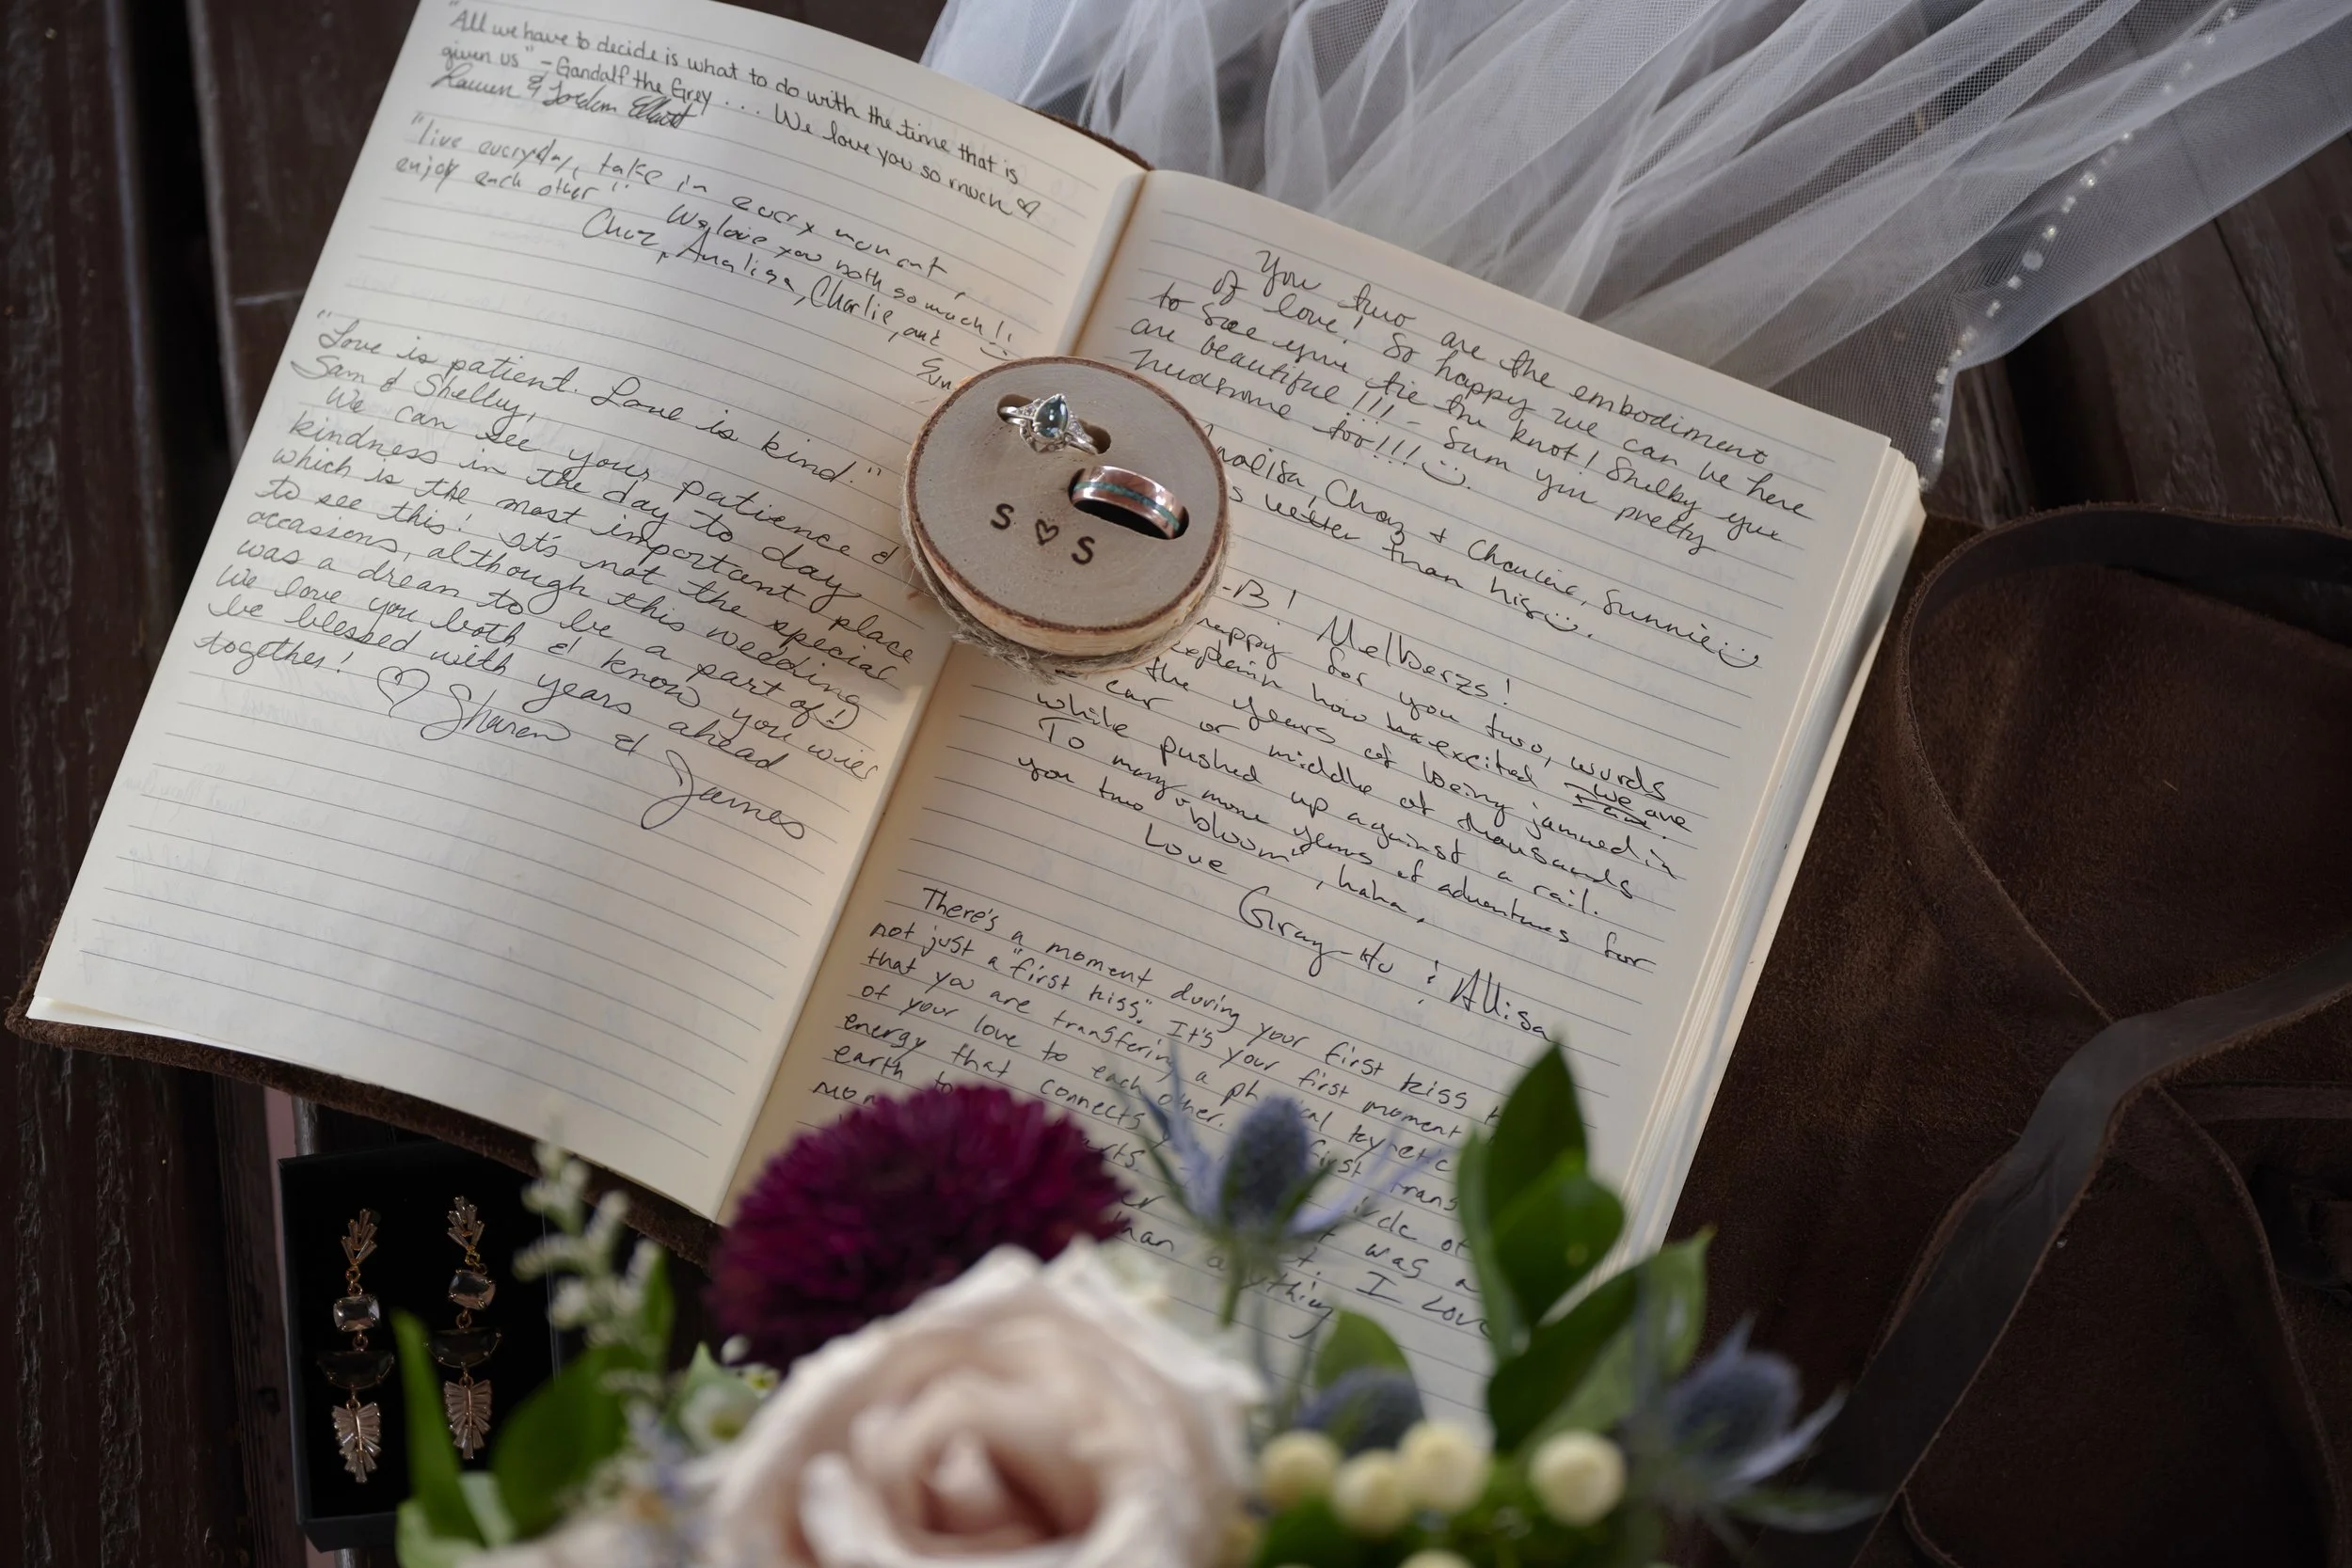 "All we have to decide is what to do with the time that is
given us" - Gandalf the Grey . . . We love you so much
Lauren & Jordan Elliott
"live everyday, take in every moment,
enjoy each other" We love you both so much!!
Chaz, Analisa, Charlie, and
Sun
"Love is patient. Love is kind."
Sam & Shelby,
We can see your patience &
kindness in the day to day
which is the most important place
to see this! It's not the special
occasions, although this wedding
was a dream to be a part of!)
We love you both & know you will
be blessed with years ahead
together! ♡ Sharen &
James
S ♡ S
You two are the embodiment
of love! So happy we can be here
to see you tie the knot! Shelby you
are beautiful!!! - Sam you pretty
handsome too!!!
Analisa, Chaz + Charlie, Sunnie
better than his
-B! Melbergs!
happy for you two, words
explain how excited we are
the years of being jammed in
car or middle of thousands
while pushed up against a rail.
To many more years of adventures for
you two "bloom", haha,
Love Gray-Hu & Allisa
There's a moment during your first kiss
not just a "first kiss". It's your first moment
that you are transfering a ph ical kynetic
of your love to each other. first trans
energy that connects
earth to arts. ircle of
mom er t was a
than anything t. I Love